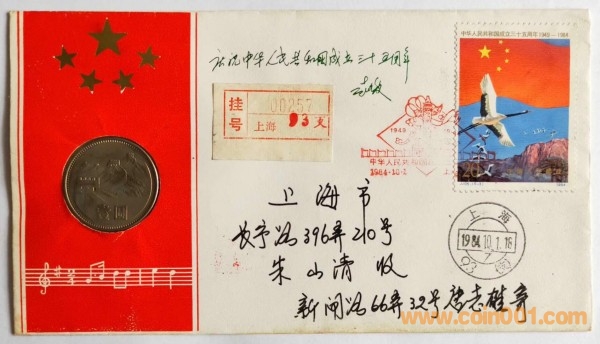 庆祝中华人民共和国成立三十五周年
中华人民共和国成立三十五周年1949-1984
挂号
00257
上海 93支
1949
中华人民共和国
1984·10·1
20
1984
壹圆
上海
1984.10.1.18
7
93
上海市
长宁路396弄210号
朱山清 收
新闸路66弄32号
www.coin001.com